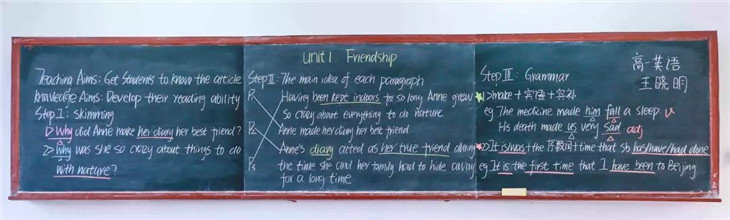 Unit 1 Friendship
Teaching Aims: Get students to know the article
Knowledge Aims: Develop their reading ability
Step I: Skimming
1> Why did Anne make her diary her best friend?
2> Why was she so crazy about things to do
with nature?
Step II: The main idea of each paragraph
P1
P2
P3
Having been kept indoors for so long, Anne grew
so crazy about everything to do nature
Anne made her diary her best friend
Anne's diary acted as her true friend during
the time she and her family had to hide away
for a long time
Step III: Grammar
高一英语
王晓明
1> make + 宾语 + 宾补
eg The medicine made him fall a sleep. v
His death made us very sad adj
2> It is/was + the 序数词 + time that sb has/have/had done
eg It is the first time that I have been to Beijing